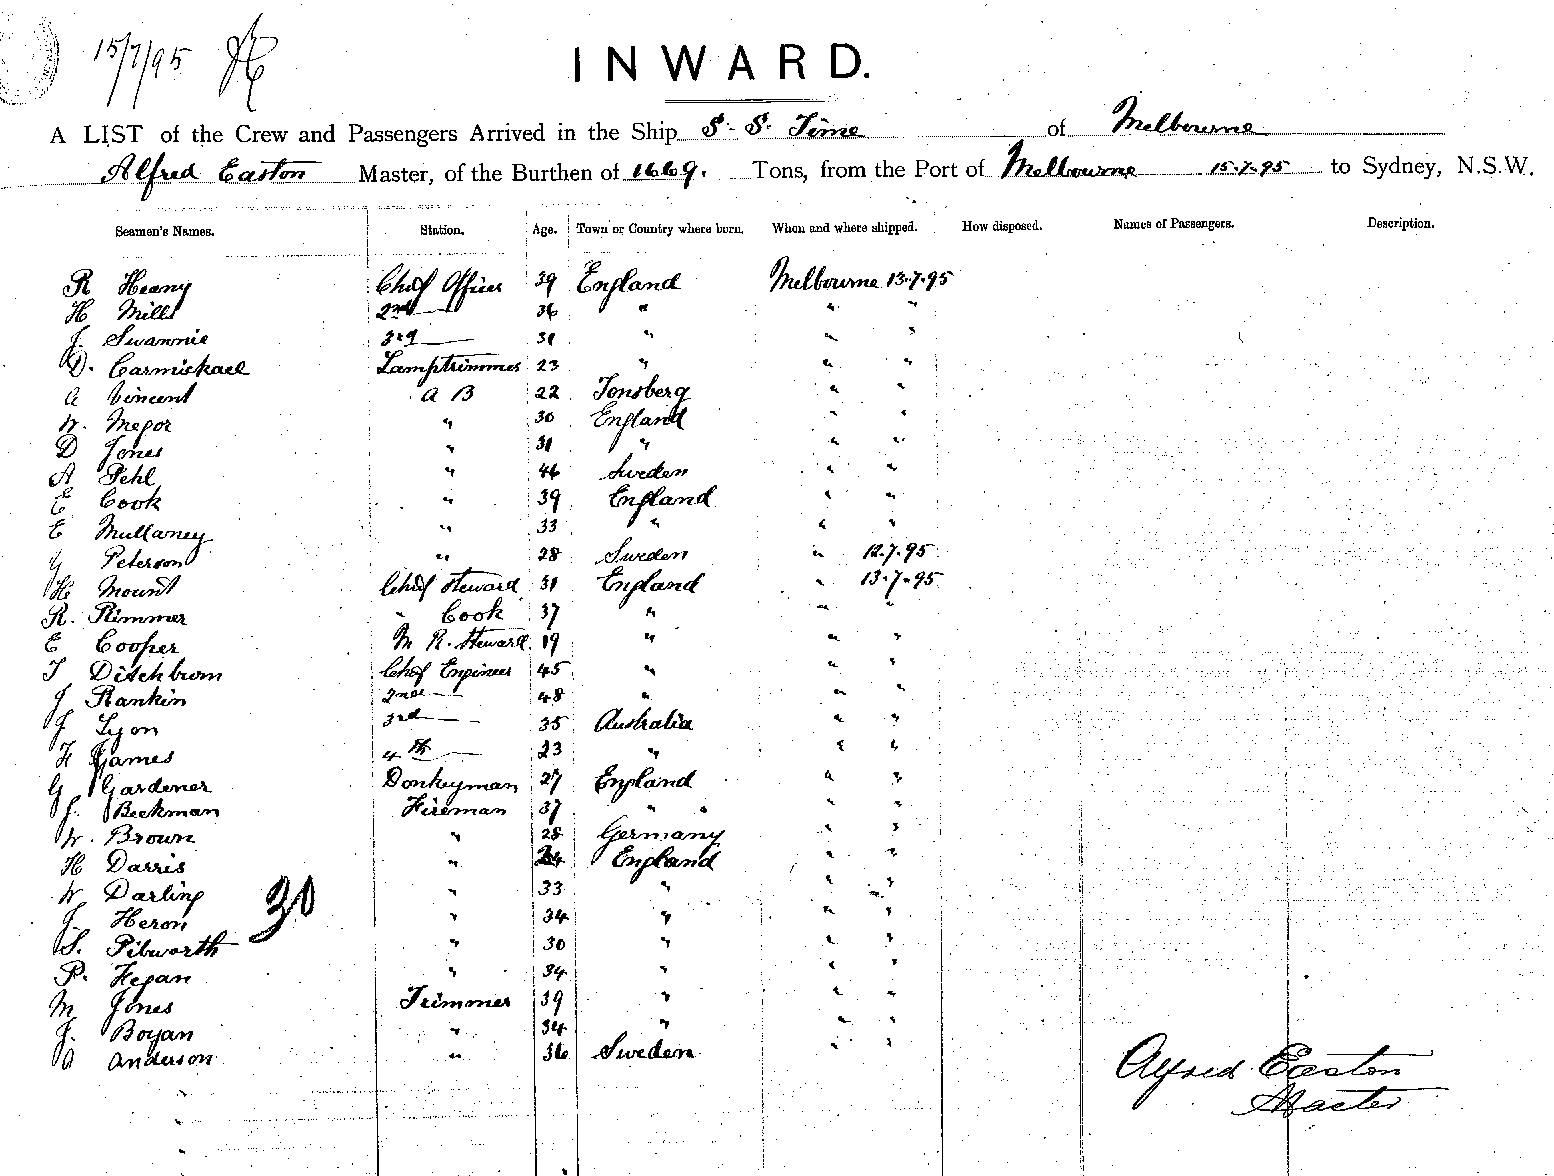 15/7/95
INWARD.
A LIST of the Crew and Passengers Arrived in the Ship S. S. Time of Melbourne
Alfred Easton Master, of the Burthen of 1669. Tons, from the Port of Melbourne 15.7.95 to Sydney, N.S.W.
Seamen's Names. Station. Age. Town or Country where born. When and where shipped. How disposed. Names of Passengers. Description.
R Heany Chief Officer 39 England Melbourne 13.7.95
H Mills 2nd — 36 " " "
J. Swannie 3rd — 31 " " "
D. Carmichael Lamptrimmer 23 " " "
A Vincent A B 22 Tonsberg " "
W. Megor " 30 England " "
D Jones " 31 " " "
A Pehl " 46 Sweden " "
E Cook " 39 England " "
E Mullaney " 33 " " "
G Peterson " 28 Sweden " 12.7.95
H Mount Chief Steward 31 England " 13.7.95
R. Rimmer " Cook 37 " " "
E Cooper M R. Steward 19 " " "
T Ditchburn Chief Engineer 45 " " "
J Rankin 2nd — 48 " " "
J Lyon 3rd — 35 Australia " "
H James 4th — 23 " " "
G Gardener Donkeyman 27 England " "
J. Beekman Fireman 37 " " "
W. Brown " 28 Germany " "
H Darris " 24 England " "
W Darling " 33 " " "
30
J. Heron " 34 " " "
S. Pibworth " 30 " " "
P. Hegan " 34 " " "
M Jones Trimmer 39 " " "
J. Boyan " 34 " " "
A Anderson " 36 Sweden " "
Alfred Easton
Master